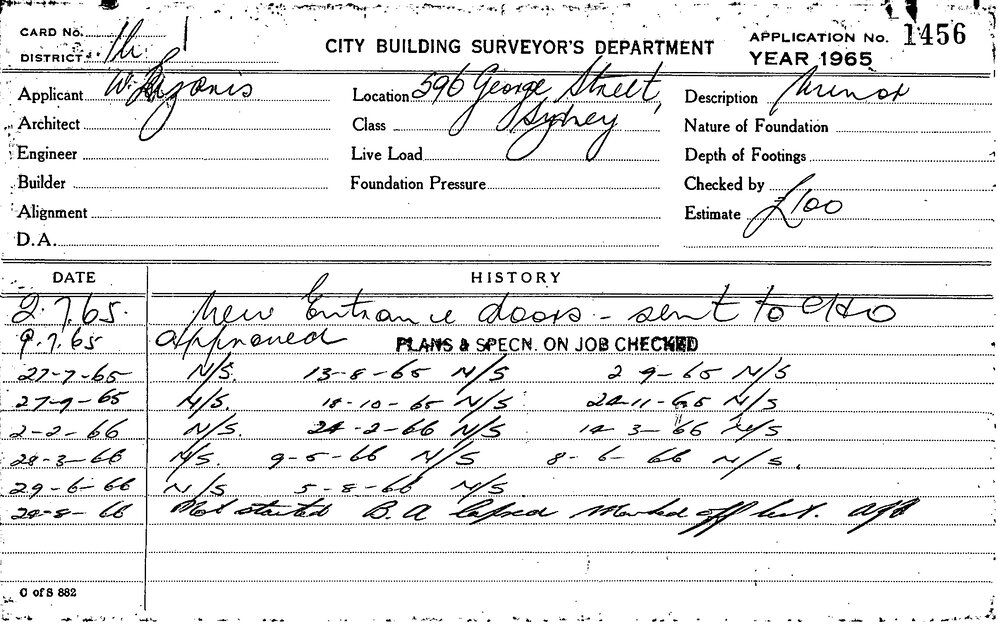 CARD No. 1
DISTRICT
CITY BUILDING SURVEYOR'S DEPARTMENT
APPLICATION No. 1456
YEAR 1965
Applicant W.
Location 596 George Street,
Sydney
Description Minor
Architect
Class
Nature of Foundation
Engineer
Live Load
Depth of Footings
Builder
Foundation Pressure
Checked by
Alignment
Estimate £100
D.A.
DATE HISTORY
2.7.65. New Entrance doors - sent to CHO
9.7.65 Approved PLANS & SPECN. ON JOB CHECKED
27-7-65 N/S. 13-8-65 N/S 2 9-65 N/S
27-9-65 N/S. 18-10-65 N/S 24-11-65 N/S
2-2-66 N/S. 24-2-66 N/S 14 3-66 N/S
28-3-66 N/S. 9-5-66 N/S 8-6-66 N/S.
29-6-66 N/S 5-8-66 N/S.
24-8-66 Not started B.A lapsed Marked off list.
C of S 882